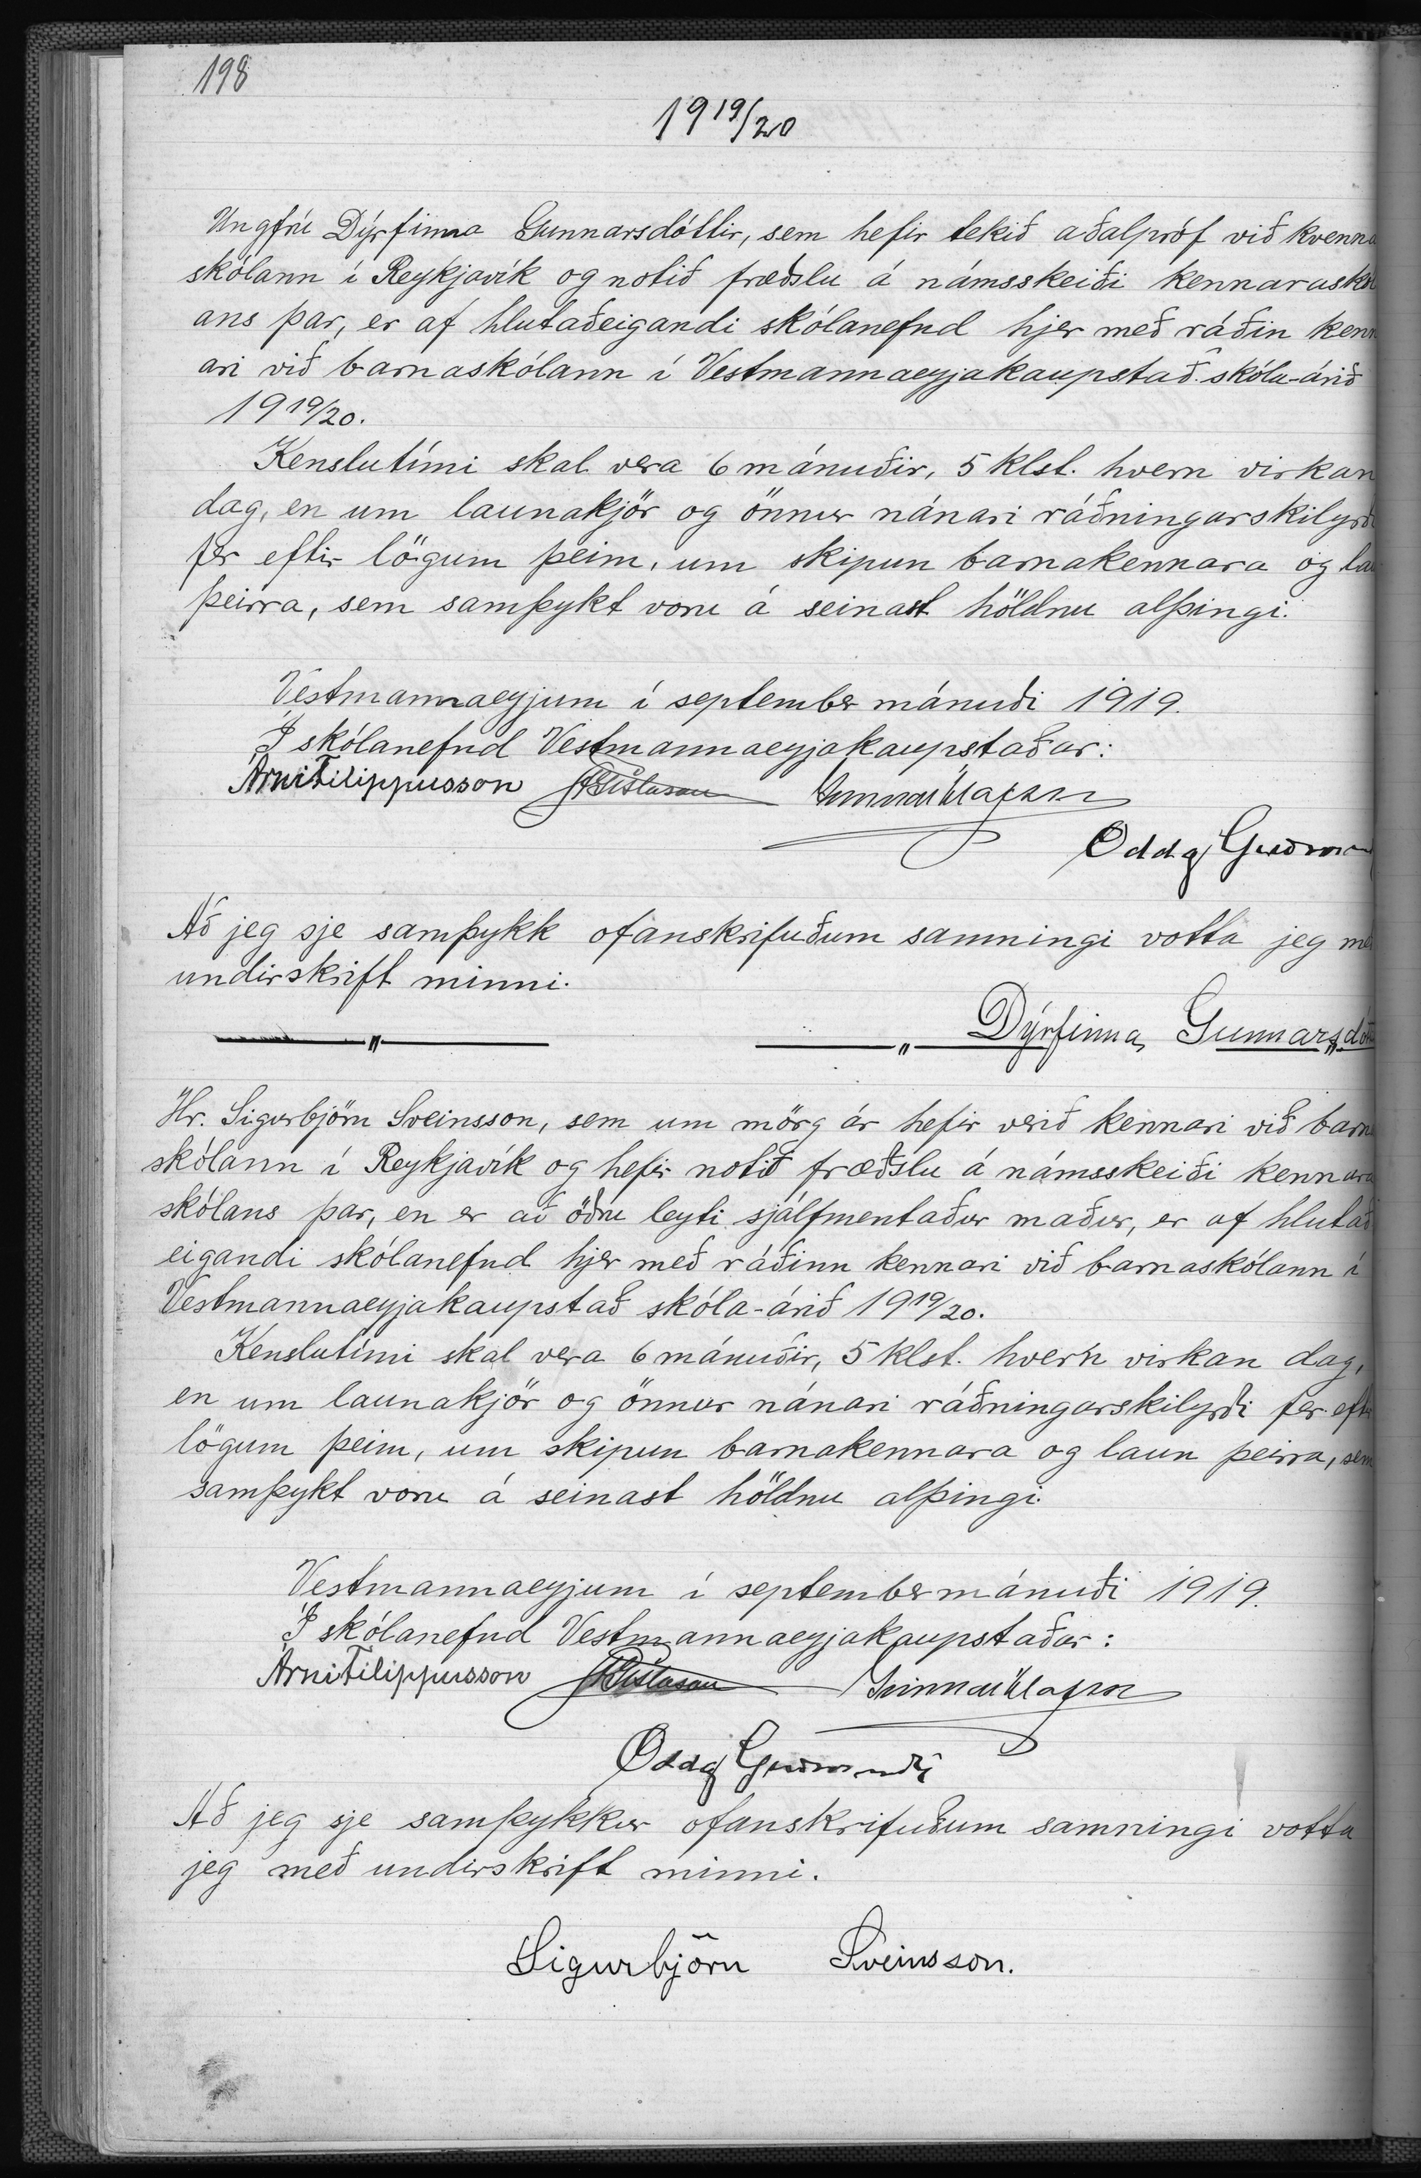 198
19 19/20
Ungfrú Dýrfinna Gunnarsdóttir, sem hefir tekið aðalpróf við kvenna
skólann í Reykjavík og notið fræðslu á námsskeiði kennaraskól
ans þar, er af hlutaðeigandi skólanefnd hjer með ráðin kenn
ari við barnaskólann í Vestmannaeyjakaupstað skóla-árið
19 19/20.
Kenslutími skal vera 6 mánuðir, 5 klst. hvern virkan
dag, en um launakjör og önnur nánari ráðningarskilyrði
fer eftir lögum þeim, um skipun barnakennara og lau
þeirra, sem samþykt voru á seinast höldnu alþingi.
Vestmannaeyjum í september mánuði 1919.
Í skólanefnd Vestmannaeyjakaupstaðar:
Árni Filippusson JGíslason Gunnar Ólafsson
Oddg Guðmun
Að jeg sje samþykk ofanskrifuðum samningi votta jeg me
undirskrift minni.
Dýrfinna Gunnarsdót
Hr. Sigurbjörn Sveinsson, sem um mörg ár hefir verið kennari við barna
skólann í Reykjavík og hefir notið fræðslu á námsskeiði kennara
skólans þar, en er að öðru leyti sjálfmentaður maður, er af hlutað
eigandi skólanefnd hjer með ráðinn kennari við barnaskólann í
Vestmannaeyjakaupstað skóla-árið 19 19/20.
Kenslutími skal vera 6 mánuðir, 5 klst. hvern virkan dag,
en um launakjör og önnur nánari ráðningarskilyrði fer eftir
lögum þeim, um skipun barnakennara og laun þeirra, sem
samþykt voru á seinast höldnu alþingi.
Vestmannaeyjum í september mánuði 1919.
Í skólanefnd Vestmannaeyjakaupstaðar:
Árni Filippusson JGíslason Gunnar Ólafsson
Oddg Guðmunds
Að jeg sje samþykkur ofanskrifuðum samningi votta
jeg með undirskrift minni.
Sigurbjörn Sveinsson.